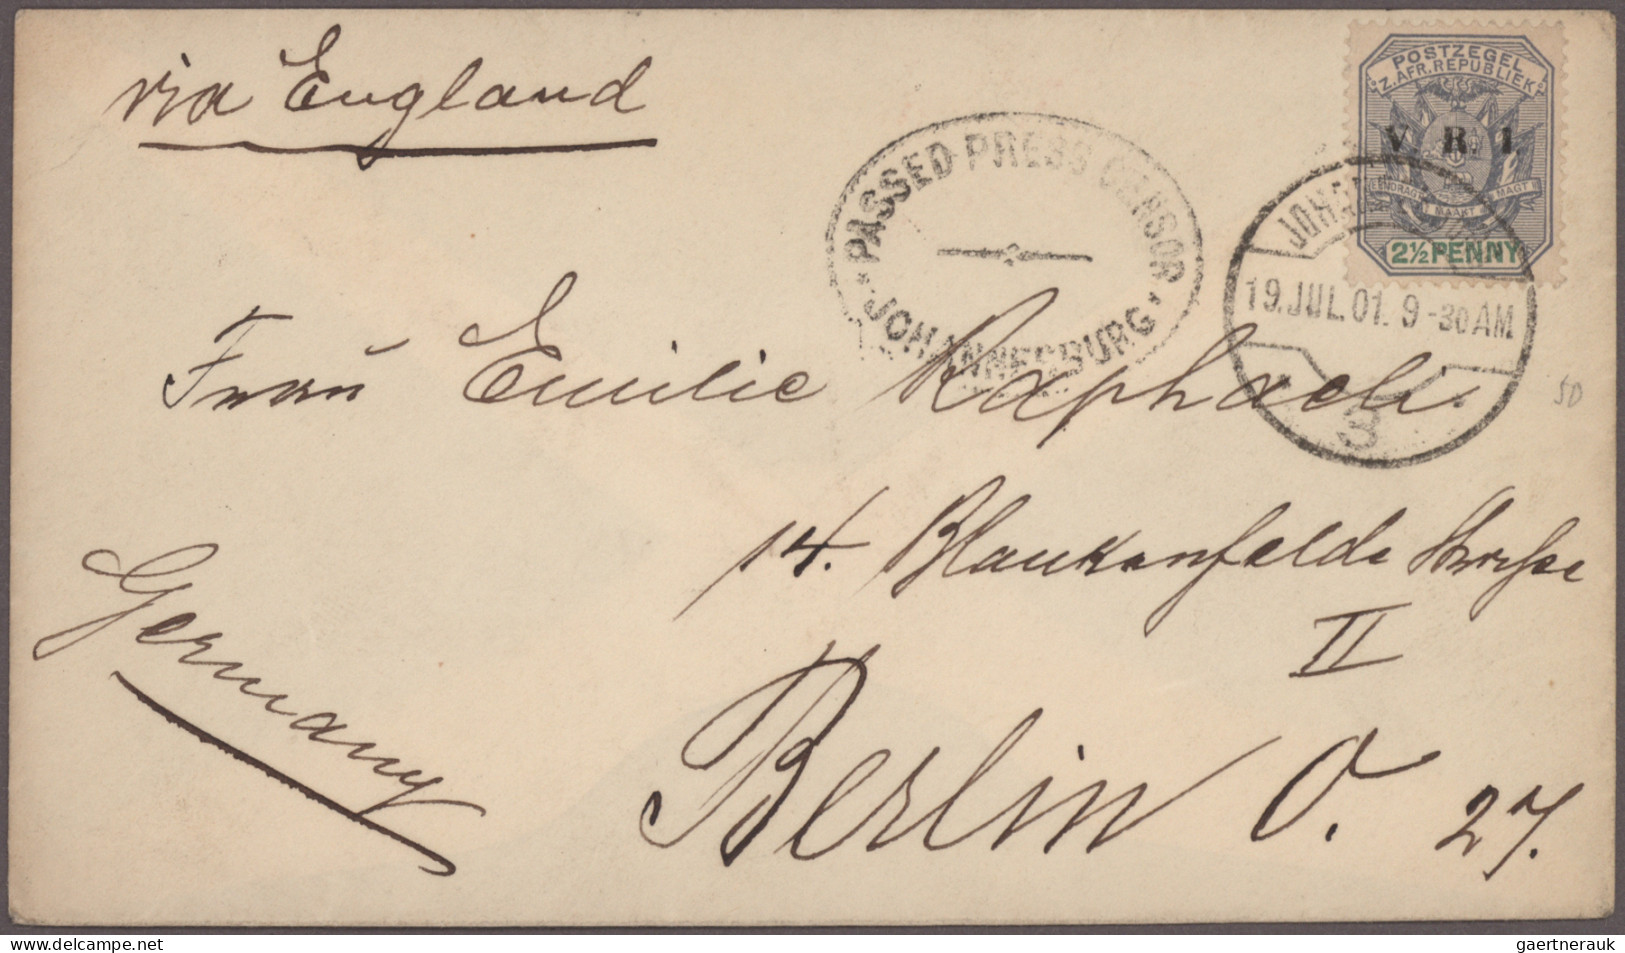 via England
POSTZEGEL
Z. AFR. REPUBLIEK
V. R. I.
EENDRAGT MAAKT MAGT
2½ PENNY
PASSED PRESS CENSOR
JOHANNESBURG
19. JUL. 01. 9-30 AM
3
50
Frau Emilie Raphaeli.
14. Blankenfelde Strasse
II
Germany
Berlin O. 27.
www.delcampe.net
gaertnerauk